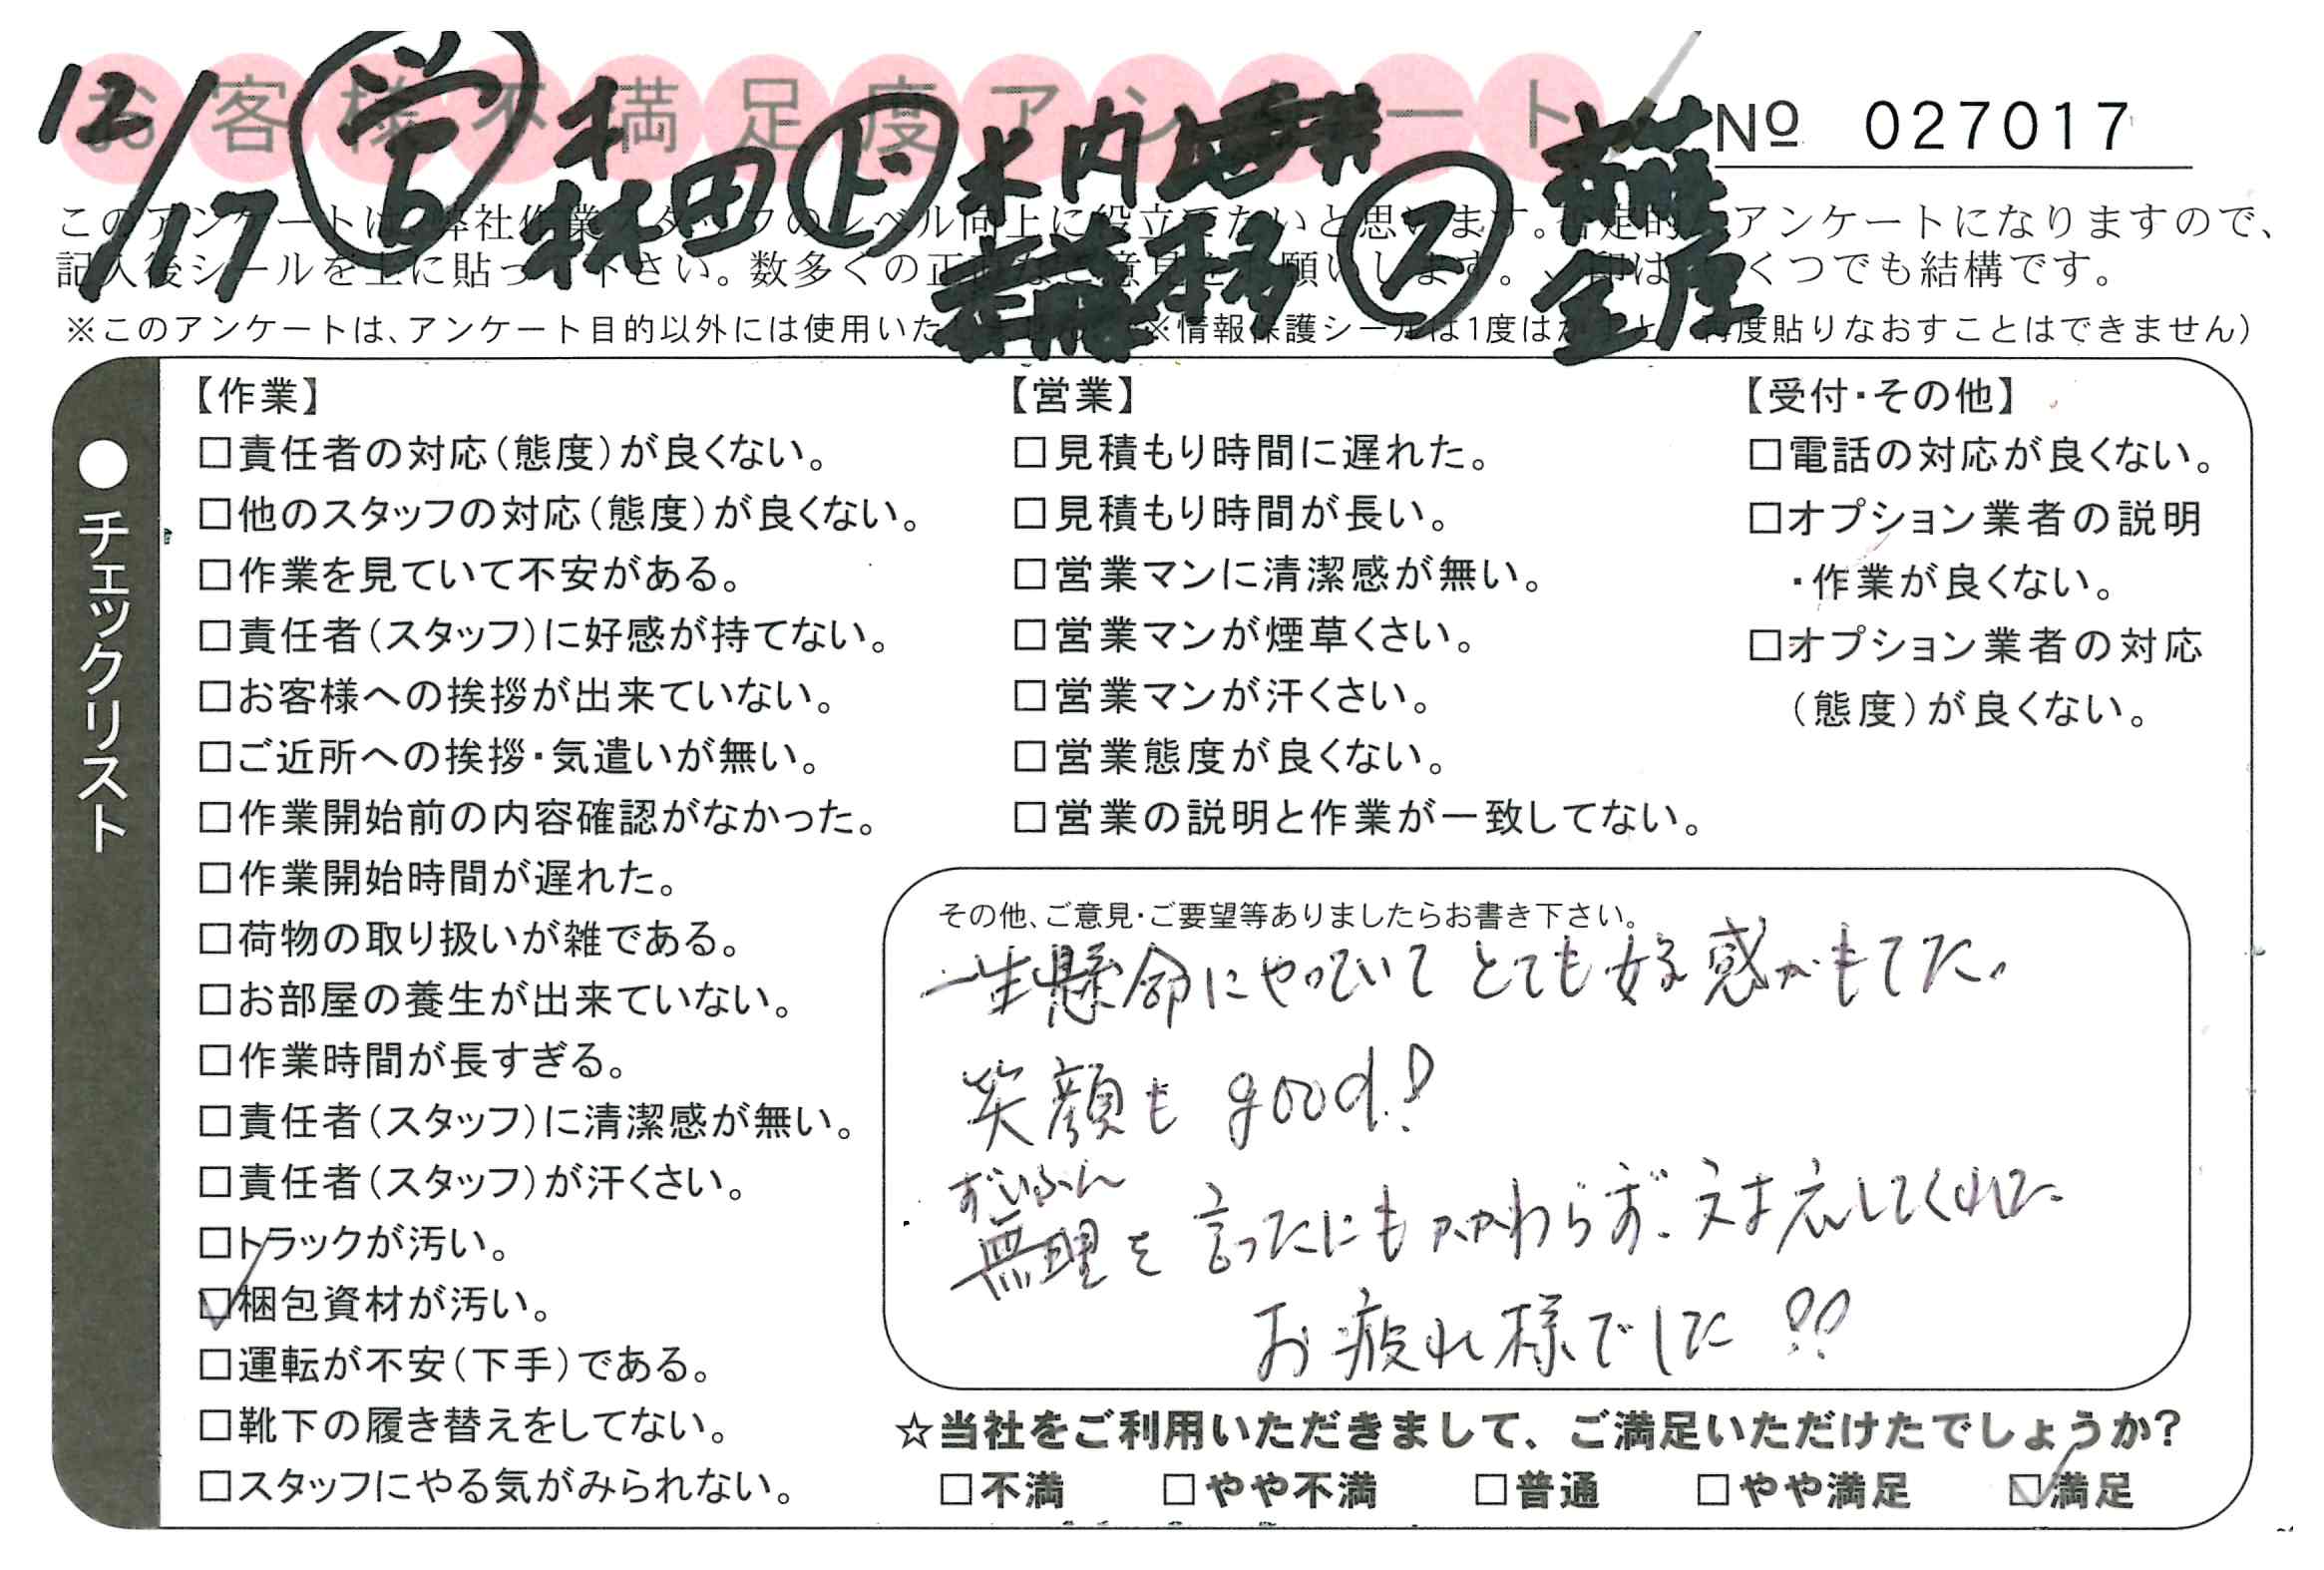 お客様不満足度アンケート
№ 027017
12/17 営 田 ド 木内 ス
このアンケートは、弊社作業スタッフのレベル向上に役立てたいと思います。 アンケートになりますので、
記入後シールを上に貼って下さい。数多くの正 意見を お願いします。 くつでも結構です。
※このアンケートは、アンケート目的以外には使用いた ※情報保護シールは1度は 再度貼りなおすことはできません)
●チェックリスト
【作業】
□責任者の対応(態度)が良くない。
□他のスタッフの対応(態度)が良くない。
□作業を見ていて不安がある。
□責任者(スタッフ)に好感が持てない。
□お客様への挨拶が出来ていない。
□ご近所への挨拶・気遣いが無い。
□作業開始前の内容確認がなかった。
□作業開始時間が遅れた。
□荷物の取り扱いが雑である。
□お部屋の養生が出来ていない。
□作業時間が長すぎる。
□責任者(スタッフ)に清潔感が無い。
□責任者(スタッフ)が汗くさい。
□トラックが汚い。
☑梱包資材が汚い。
□運転が不安(下手)である。
□靴下の履き替えをしてない。
□スタッフにやる気がみられない。
【営業】
□見積もり時間に遅れた。
□見積もり時間が長い。
□営業マンに清潔感が無い。
□営業マンが煙草くさい。
□営業マンが汗くさい。
□営業態度が良くない。
□営業の説明と作業が一致してない。
【受付・その他】
□電話の対応が良くない。
□オプション業者の説明
・作業が良くない。
□オプション業者の対応
(態度)が良くない。
その他、ご意見・ご要望等ありましたらお書き下さい。
一生懸命にやっていて とても好感がもてた。
笑顔も good!
ずいぶん
無理を言ったにもかかわらず、対応してくれた
お疲れ様でした!!
☆当社をご利用いただきまして、ご満足いただけたでしょうか?
□不満 □やや不満 □普通 □やや満足 ☑満足